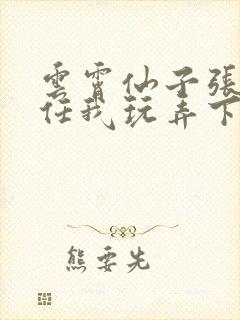 雲霄仙子張
任我玩弄下
熊要先